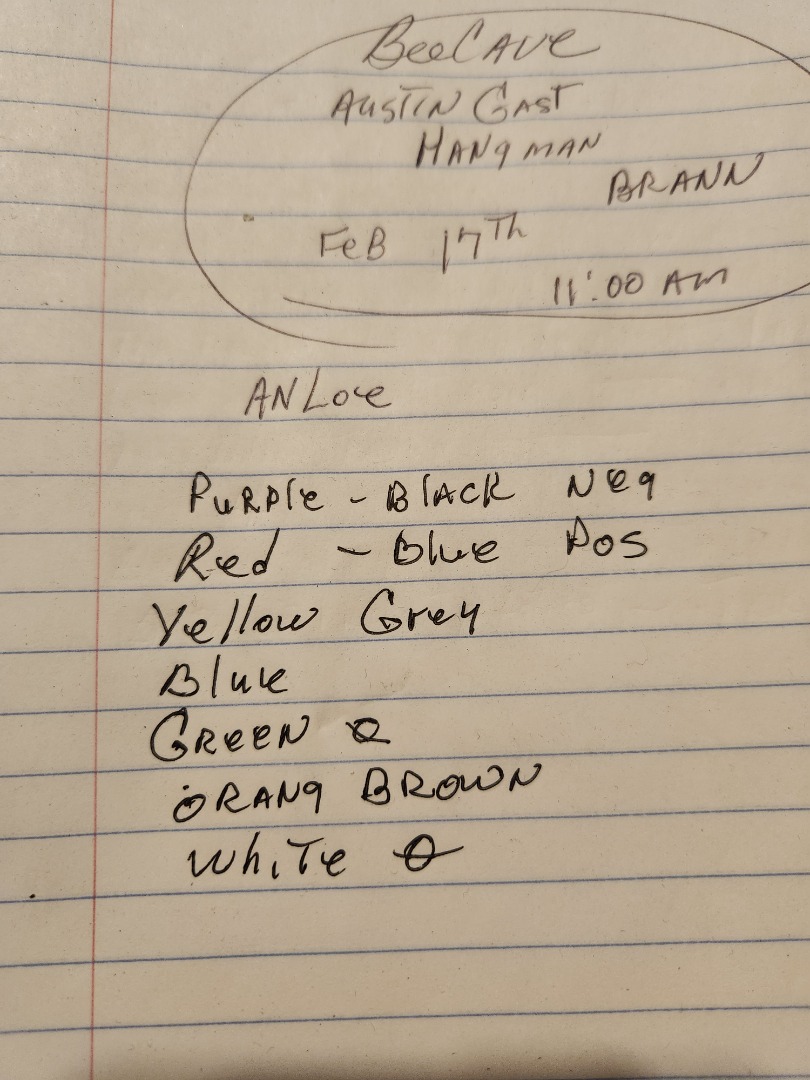 BeeCAVE
AUSTIN GAST
HANgMAN
BRANN
FeB 17Th
11:00 AM
ANLoe
PuRPle - BlACK Neg
Red - Blue Pos
Yellow Grey
Blue
GReeN
ORANg BROWN
WhiTe